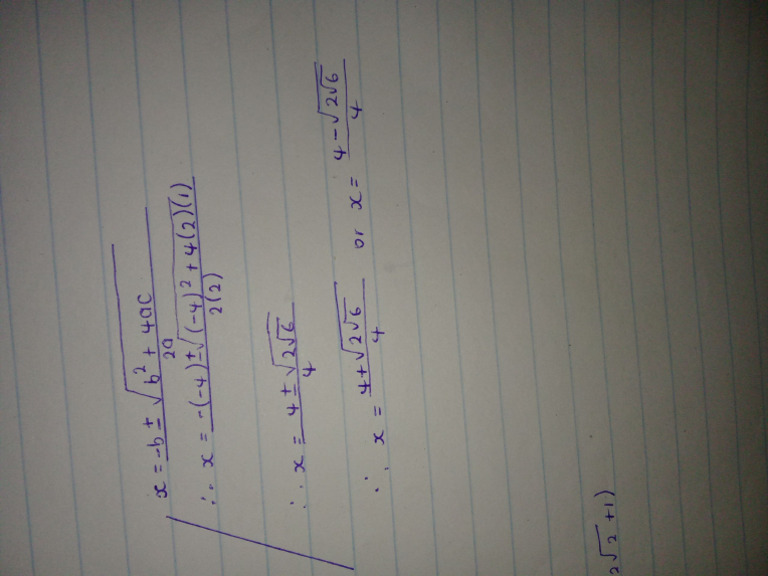 x = -b ± √(b² + 4ac) / 2a
∴ x = -(-4) ± √((-4)² + 4(2)(1)) / 2(2)
∴ x = 4 ± √(2√6) / 4
∴ x = 4 + √(2√6) / 4 or x = 4 - √(2√6) / 4
2√2 + 1)